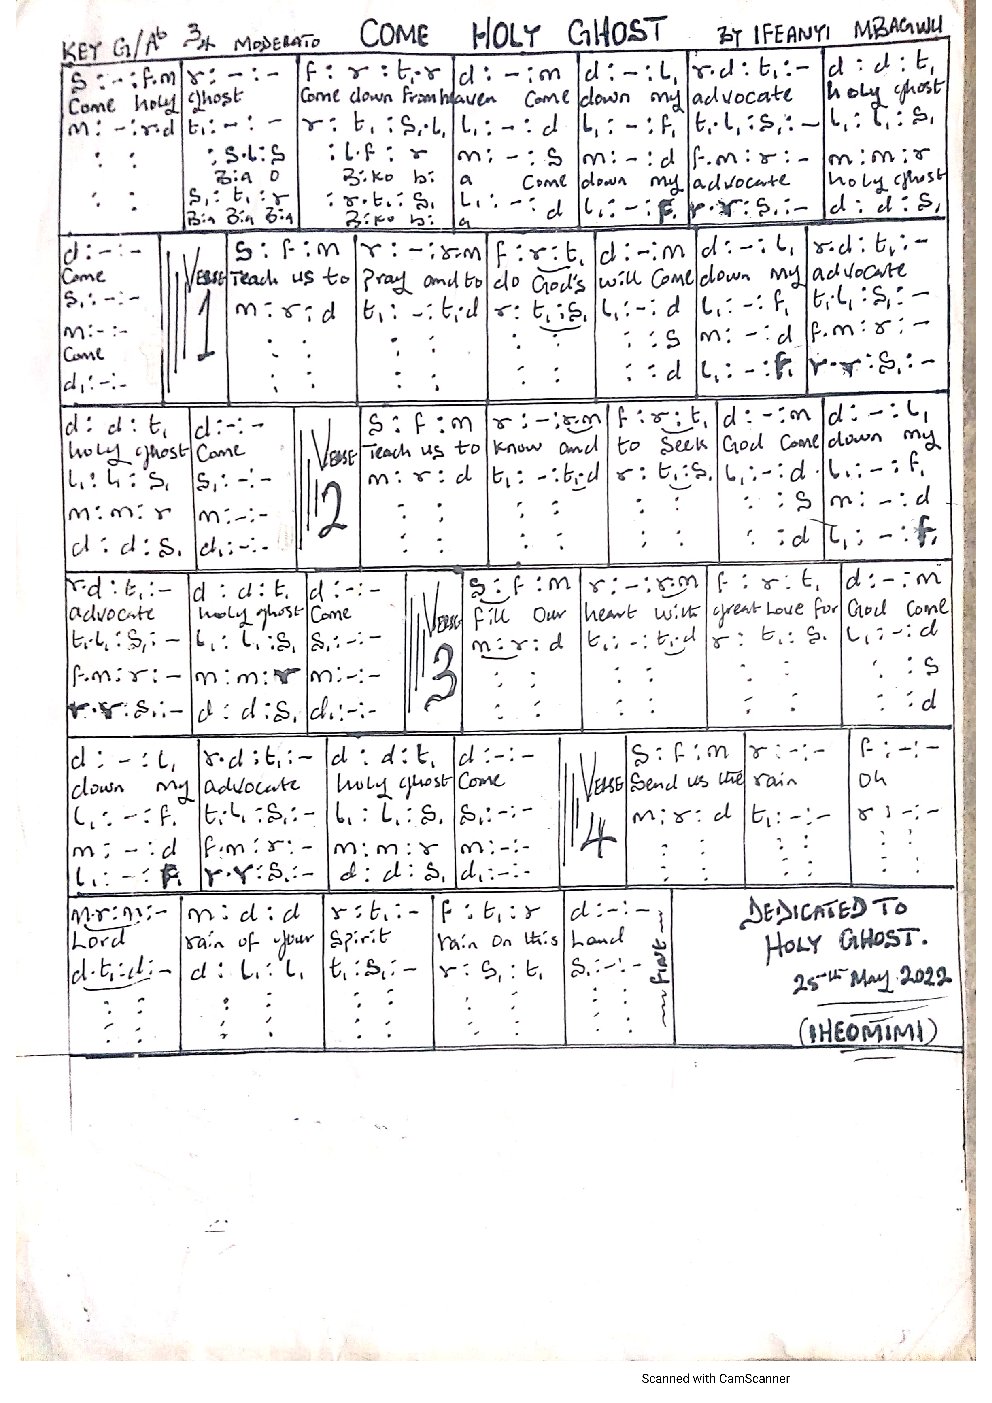 KEY G/Ab 3/4 MODERATO COME HOLY GHOST BY IFEANYI MBAGWU
s : - : f.m | r : - : - | f : r : t₁.r | d : - : m | d : - : l₁ | r.d : t₁ : - | d : d : t₁
Come holy | ghost | Come down from heaven | Come | down my | advocate | holy ghost
m : - : r.d | t₁ : - : - | r : t₁ : s₁.l₁ | l₁ : - : d | l₁ : - : f₁ | t₁.l₁ : s₁ : - | l₁ : l₁ : s₁
: : | : s.l : s | : l.f : r | m : - : s | m : - : d | f.m : r : - | m : m : r
Bia o | Biko bi | a Come | down my | advocate | holy ghost
: : | s₁ : t₁ : r | : r.t₁ : s₁ | l₁ : - : d | l₁ : - : f₁ | r.r : s₁ : - | d : d : s₁
Bia Bia Bia | Biko bi | a
d : - : - | VERSE 1 | s : f : m | r : - : r.m | f : r : t₁ | d : - : m | d : - : l₁ | r.d : t₁ : -
Come | Teach us to | pray and to | do God's | will Come | down my | advocate
s₁ : - : - | m : r : d | t₁ : - : t₁.d | r : t₁ : s₁ | l₁ : - : d | l₁ : - : f₁ | t₁.l₁ : s₁ : -
m : - : - | : : | : : | : : | : : s | m : - : d | f.m : r : -
Come
d₁ : - : - | : : | : : | : : | : : d | l₁ : - : f₁ | r.r : s₁ : -
d : d : t₁ | d : - : - | VERSE 2 | s : f : m | r : - : r.m | f : r : t₁ | d : - : m | d : - : l₁
holy ghost | Come | Teach us to | know and | to seek | God Come | down my
l₁ : l₁ : s₁ | s₁ : - : - | m : r : d | t₁ : - : t₁.d | r : t₁ : s₁ | l₁ : - : d | l₁ : - : f₁
m : m : r | m : - : - | : : | : : | : : | : : s | m : - : d
d : d : s₁ | d₁ : - : - | : : | : : | : : | : : d | l₁ : - : f₁
r.d : t₁ : - | d : d : t₁ | d : - : - | VERSE 3 | s : f : m | r : - : r.m | f : r : t₁ | d : - : m
advocate | holy ghost | Come | fill Our | heart with | great Love for | God Come
t₁.l₁ : s₁ : - | l₁ : l₁ : s₁ | s₁ : - : - | m : r : d | t₁ : - : t₁.d | r : t₁ : s₁ | l₁ : - : d
f.m : r : - | m : m : r | m : - : - | : : | : : | : : | : : s
r.r : s₁ : - | d : d : s₁ | d₁ : - : - | : : | : : | : : | : : d
d : - : l₁ | r.d : t₁ : - | d : d : t₁ | d : - : - | VERSE 4 | s : f : m | r : - : - | f : - : -
down my | advocate | holy ghost | Come | Send us the | rain | Oh
l₁ : - : f₁ | t₁.l₁ : s₁ : - | l₁ : l₁ : s₁ | s₁ : - : - | m : r : d | t₁ : - : - | r : - : -
m : - : d | f.m : r : - | m : m : r | m : - : - | : : | : : | : :
l₁ : - : f₁ | r.r : s₁ : - | d : d : s₁ | d₁ : - : - | : : | : : | : :
m.r : m : - | m : d : d | r : t₁ : - | f : t₁ : r | d : - : -
Lord | rain of your | Spirit | rain on this | Land
d.t₁ : d : - | d : l₁ : l₁ | t₁ : s₁ : - | r : s₁ : t₁ | s₁ : - : -
: : | : : | : : | : : | : :
: : | : : | : : | : : | : :
DEDICATED TO
HOLY GHOST.
25th May 2022
(IHEOMIMI)
Scanned with CamScanner